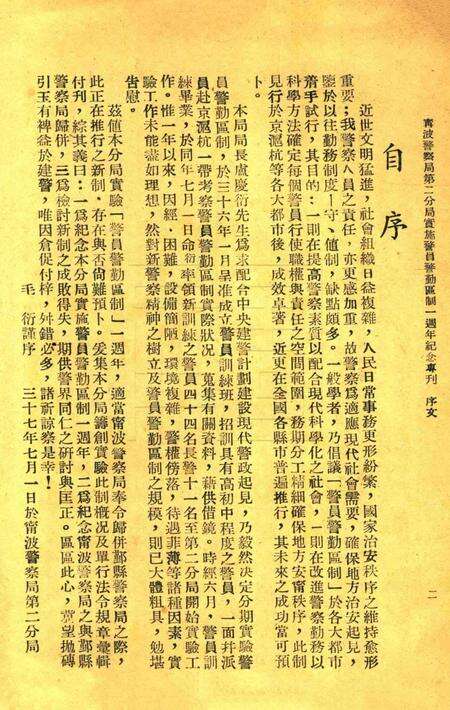 甯波警察局第二分局實施警員警勤區制一週年紀念專刊　序文
二
自序
近世文明猛進，社會組織日益複雜，人民日常事務更形紛繁，國家治安秩序之維持愈形
重要；我警察人員之責任，亦更感加重，故警察為適應現代社會需要，確保地方治安起見，
鑒於以往勤務制度—守、值制，缺點頗多。一般學者，乃倡議「警員警勤區制」於各大都市
着手試行，其目的：一則在提高警察素質以配合現代科學化之社會，一則在改進警察勤務以
科學方法確定每個警員行使職權與責任之空間範圍，務期分工精細確保地方安甯秩序，此制
見行於京滬杭等各大都市後，成效卓著，近更在全國各縣市普遍推行，其未來之成功當可預
卜。
本局局長盧慶衍先生為求配合中央建警計劃建設現代警政起見，乃毅然決定分期實驗警
員警勤區制，於三十六年一月呈准成立警員訓練班，招訓具有高初中程度之警員，一面幷派
員赴京滬杭一帶考察警員警勤區制實際狀況，蒐集有關資料，藉供借鏡。時經六月，警員訓
練畢業，於同年七月一日命衍率領新訓練之警員四十四名長警十一名至第二分局開始實驗工
作。惟一年以來，因經濟困難，設備簡陋，環境複雜，警權傍落，待遇菲薄等諸種因素，實
驗工作未能盡如理想，然對新警察精神之樹立及警員警勤區制之規模，則已大體粗具，勉堪
告慰。
茲值本分局實驗「警員警勤區制」一週年，適當甯波警察局奉令歸併鄞縣警察局之際，
此正在推行之新制，存在與否尚難預卜。爰集本分局籌創實驗此制概况及單行法令規章彙輯
付刊，綜其義曰：一為紀念本分局實施警員警勤區制一週年，二為紀念甯波警察局之與鄞縣
警察局歸併，三為檢討新制之成敗得失，期供警界同仁之研討與匡正。區區此心，冀望拋磚
引玉有裨益於建警，唯因倉促付梓，舛錯必多，諸祈諒察是幸！
毛　衍謹序　三十七年七月一日於甯波警察局第二分局